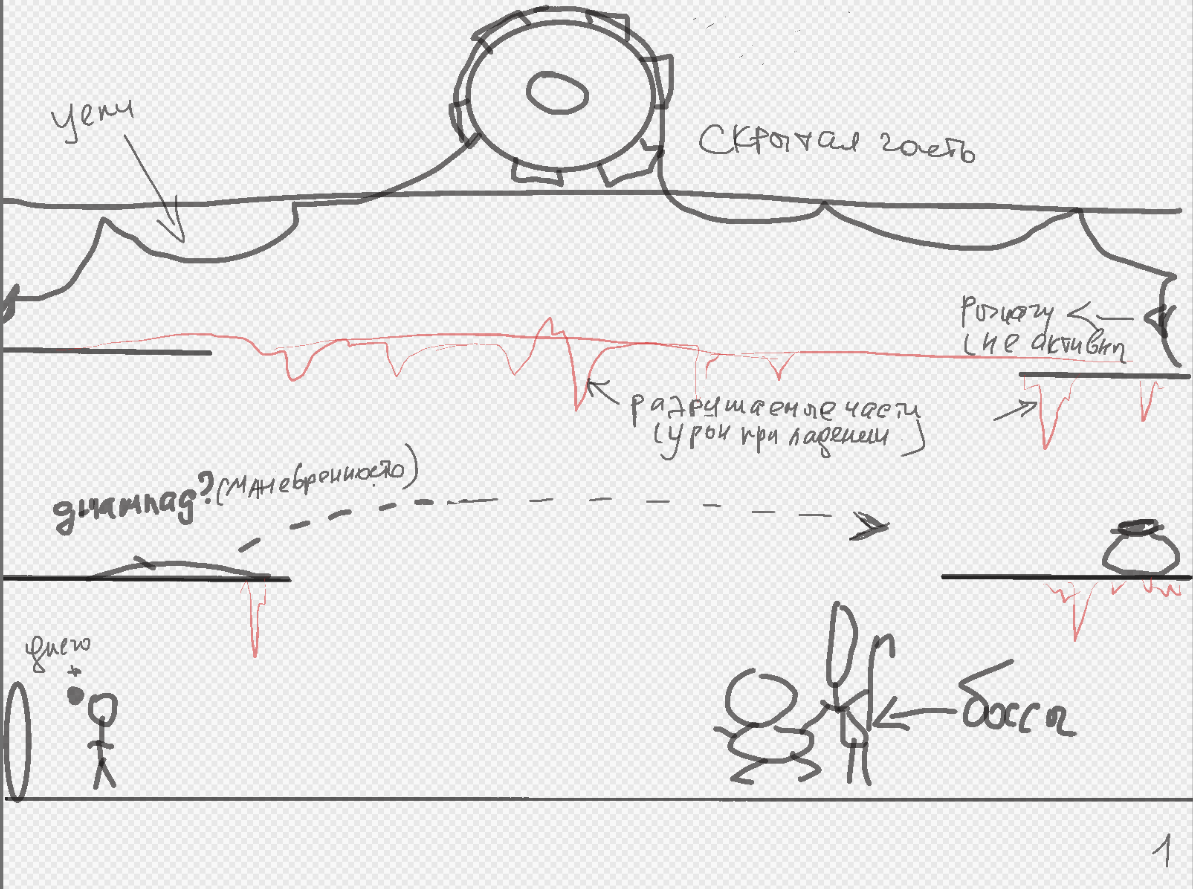 цепи
Скрытая часть
рычагу
(не активны
разрушаемые части
(урон при падении)
джампад? (маневренность)
боссы
1